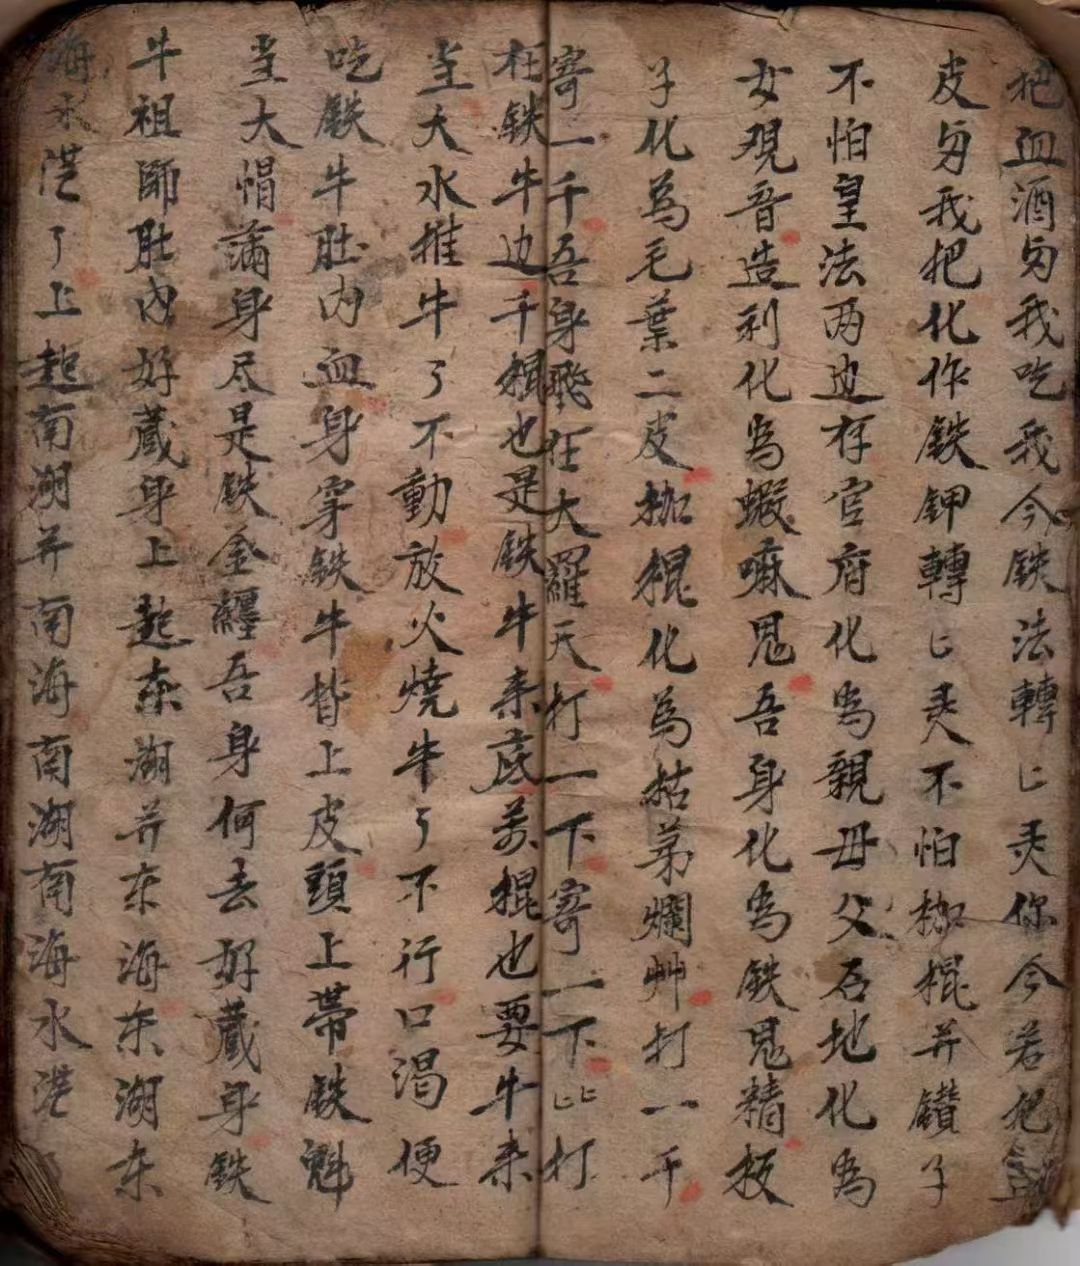 把血酒勻我吃我今鉄法轉匕灵你今若把血
皮勻我把化作鉄鉀轉匕灵不怕枷棍并鑽子
不怕皇法两边存官府化為親母父右地化為
女观音造利化為蝦嘛鬼吾身化為鉄鬼精板
子化為毛葉二皮枷棍化為枯弟爛艸打一千
寄一千吾身飛在大羅天打一下寄一下匕匕打
在鉄牛边千棍也是鉄牛来底万棍也要牛来
当大水推牛了不動放火燒牛了不行口渴便
吃鉄牛肚内血身穿鉄牛背上皮頭上帶鉄魁
当大帽滿身尽是鉄全纏吾身何去好藏身鉄
牛祖師肚內好藏身上起东湖并东海东湖东
海水港了上起南湖并南海南湖南海水港